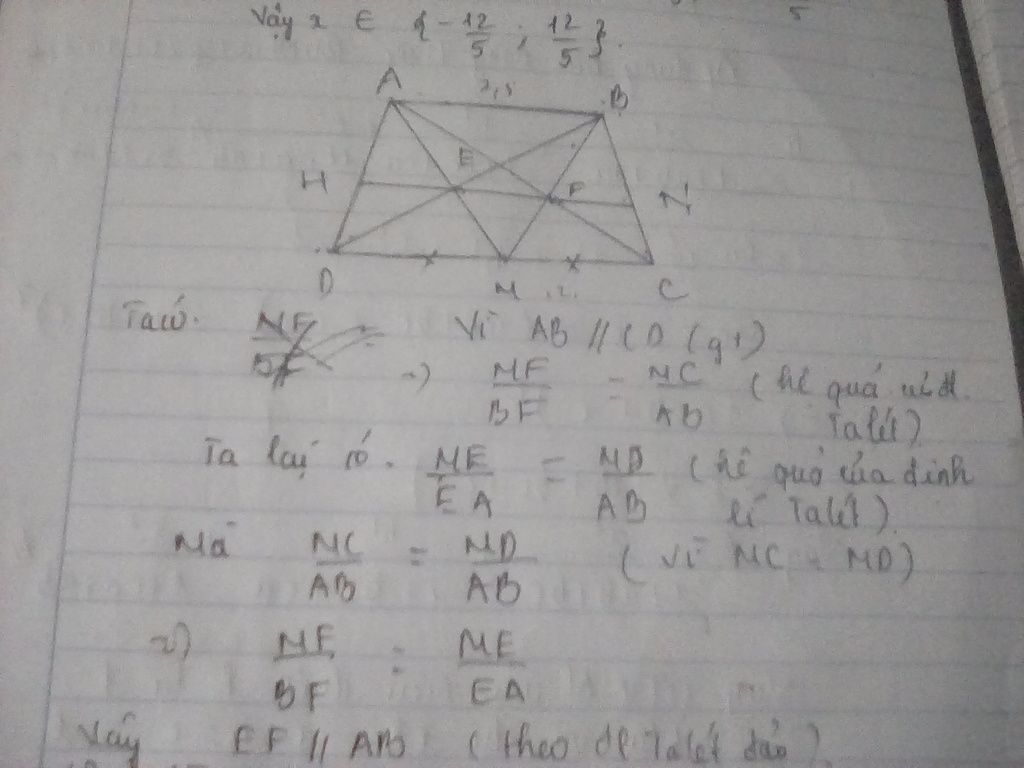 Vậy x ∈ {-12/5 ; 12/5}.
5
A
B
E
F
H
N
D
M
C
Ta có. Vì AB // CD (gt)
=> MF/BF = MC/AB (hệ quả
Talét)
Ta lại có. ME/EA = MD/AB (hệ quả của định
lí Talét)
Mà MC/AB = MD/AB (vì MC = MD)
=> MF/BF = ME/EA
Vậy EF // AB (theo đl Talét đảo)